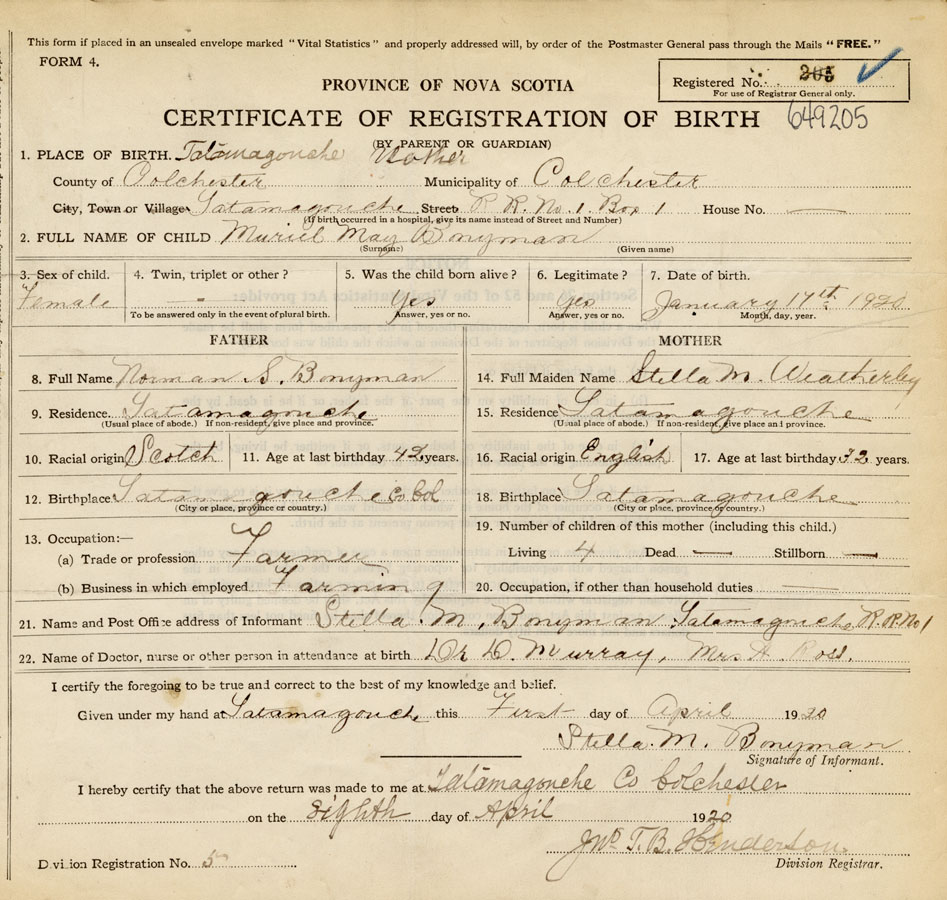 This form if placed in an unsealed envelope marked "Vital Statistics" and properly addressed will, by order of the Postmaster General pass through the Mails "FREE."
FORM 4.
Registered No. 205
For use of Registrar General only.
PROVINCE OF NOVA SCOTIA
CERTIFICATE OF REGISTRATION OF BIRTH 649205
(BY PARENT OR GUARDIAN)
1. PLACE OF BIRTH. Tatamagouche Mother
County of Colchester Municipality of Colchester
City, Town or Village Tatamagouche Street R R. No. 1. Box 1 House No. —
(If birth occurred in a hospital, give its name instead of Street and Number)
2. FULL NAME OF CHILD Muriel May Bonyman
(Surname) (Given name)
3. Sex of child. 4. Twin, triplet or other? 5. Was the child born alive? 6. Legitimate? 7. Date of birth.
Female - Yes Yes January 17th 1920
To be answered only in the event of plural birth. Answer, yes or no. Answer, yes or no. Month, day, year.
FATHER MOTHER
8. Full Name Norman S. Bonyman 14. Full Maiden Name Stella M. Weatherby
9. Residence. Tatamagouche 15. Residence Tatamagouche
(Usual place of abode.) If non-resident, give place and province. (Usual place of abode.) If non-resident, give place and province.
10. Racial origin Scotch 11. Age at last birthday 42 years. 16. Racial origin English 17. Age at last birthday 32 years.
12. Birthplace Tatamagouche Co Col 18. Birthplace Tatamagouche
(City or place, province or country.) (City or place, province or country.)
13. Occupation:— 19. Number of children of this mother (including this child.)
(a) Trade or profession Farmer Living 4 Dead — Stillborn —
(b) Business in which employed Farming 20. Occupation, if other than household duties
21. Name and Post Office address of Informant Stella M. Bonyman Tatamagouche R.R. No 1
22. Name of Doctor, nurse or other person in attendance at birth Dr D. Murray, Mrs A Ross.
I certify the foregoing to be true and correct to the best of my knowledge and belief.
Given under my hand at Tatamagouche this First day of April 1920
Stella. M. Bonyman
Signature of Informant.
I hereby certify that the above return was made to me at Tatamagouche Co Colchester
on the Eighth day of April 1920
Jno T. B. Henderson.
Division Registration No. 5 Division Registrar.